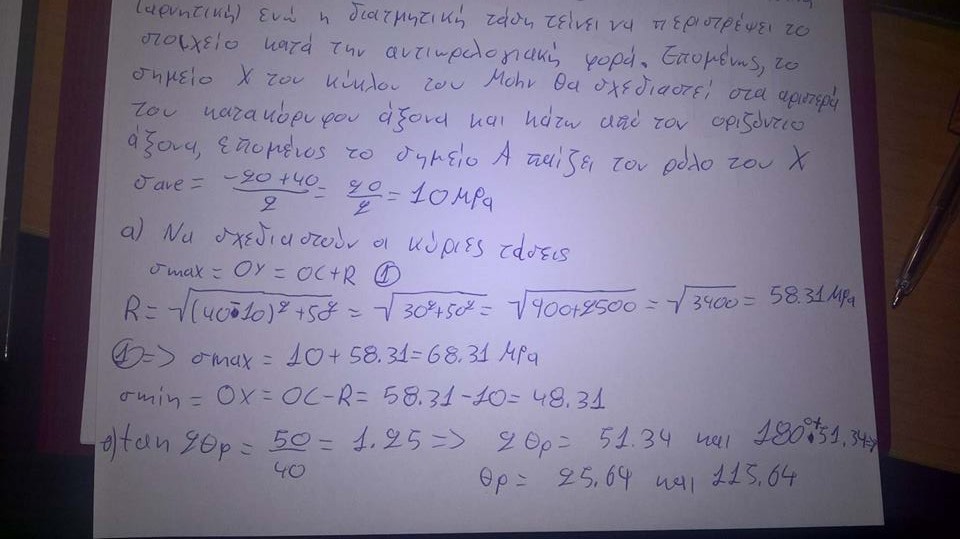 (αρνητική) ενώ η διατμητική τάση τείνει να περιστρέψει το
στοιχείο κατά την αντιωρολογιακή φορά. Επομένως, το
σημείο X του κύκλου του Mohr θα σχεδιαστεί στα αριστερά
του κατακόρυφου άξονα και κάτω από τον οριζόντιο
άξονα, επομένως το σημείο A παίζει τον ρόλο του X
σave = -20+40/2 = 20/2 = 10 MPa
α) Να σχεδιαστούν οι κύριες τάσεις
σmax = OY = OC+R ①
R = √(40-10)²+50² = √30²+50² = √400+2500 = √3400 = 58.31 MPa
①=> σmax = 10+58.31=68.31 MPa
σmin = OX = OC-R = 58.31-10= 48.31
θ) tan 2θp = 50/40 = 1.25 => 2θp = 51.34 και 180°+51.34=>
θp = 25.64 και 115.64